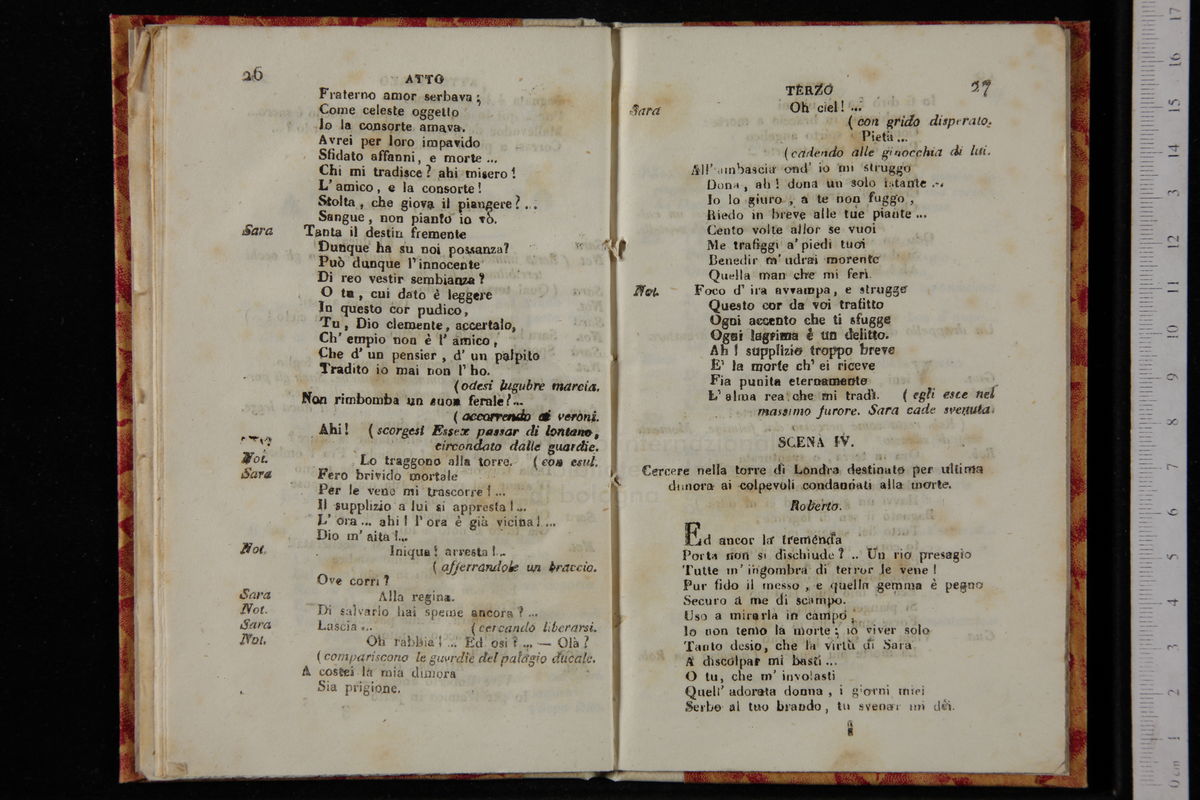 26 ATTO
Fraterno amor serbava;
Come celeste oggetto
Io la consorte amava.
Avrei per loro impavido
Sfidato affanni, e morte ...
Chi mi tradisce? ahi misero!
L'amico, e la consorte!
Stolta, che giova il piangere? ...
Sangue, non pianto io vò.
Sara Tanta il destin fremente
Dunque ha su noi possanza?
Può dunque l'innocente
Di reo vestir sembianza?
O tu, cui dato è leggere
In questo cor pudico,
Tu, Dio clemente, accertalo,
Ch' empio non è l'amico,
Che d'un pensier, d'un palpito
Tradito io mai non l'ho.
(odesi lugubre marcia.
Non rimbomba un suon ferale?...
(accorrendo ai veroni.
Ahi! (scorgesi Essex passar di lontano,
circondato dalle guardie.
Not. Lo traggono alla torre. (con esul.
Sara Fero brivido mortale
Per le vene mi trascorre! ...
Il supplizio a lui si appresta!...
L'ora ... ahi! l'ora è già vicina! ...
Dio m'aita!...
Not. Iniqua! arresta!...
(afferrandole un braccio.
Ove corri?
Sara Alla regina.
Not. Di salvarlo hai speme ancora? ...
Sara Lascia ... (cercando liberarsi.
Not. Oh rabbia! ... Ed osi? ... — Olà?
(compariscono le guardie del palagio ducale.
A costei la mia dimora
Sia prigione.
TERZO 27
Sara Oh ciel! ...
(con grido disperato.
Pietà ...
(cadendo alle ginocchia di lui.
All'ambascia ond'io mi struggo
Dona, ah! dona un solo istante ...
Io lo giuro, a te non fuggo,
Riedo in breve alle tue piante ...
Cento volte allor se vuoi
Me trafiggi a' piedi tuoi
Benedir m'udrai morente
Quella man che mi ferì.
Not. Foco d'ira avvampa, e strugge
Questo cor da voi trafitto
Ogni accento che ti sfugge
Ogni lagrima è un delitto.
Ah! supplizio troppo breve
E' la morte ch'ei riceve
Fia punita eternamente
L'alma rea che mi tradì. (egli esce nel
massimo furore. Sara cade svenuta.
SCENA IV.
Cercere nella torre di Londra destinato per ultima
dimora ai colpevoli condannati alla morte.
Roberto.
Ed ancor la tremenda
Porta non si dischiude? .. Un rio presagio
Tutte m'ingombra di terror le vene!
Pur fido il messo, e quella gemma è pegno
Securo a me di scampo.
Uso a mirarla in campo,
Io non temo la morte; io viver solo
Tanto desio, che la virtù di Sara
A discolpar mi basti ...
O tu, che m'involasti
Quell'adorata donna, i giorni miei
Serbo al tuo brando, tu svenar mi dèi.